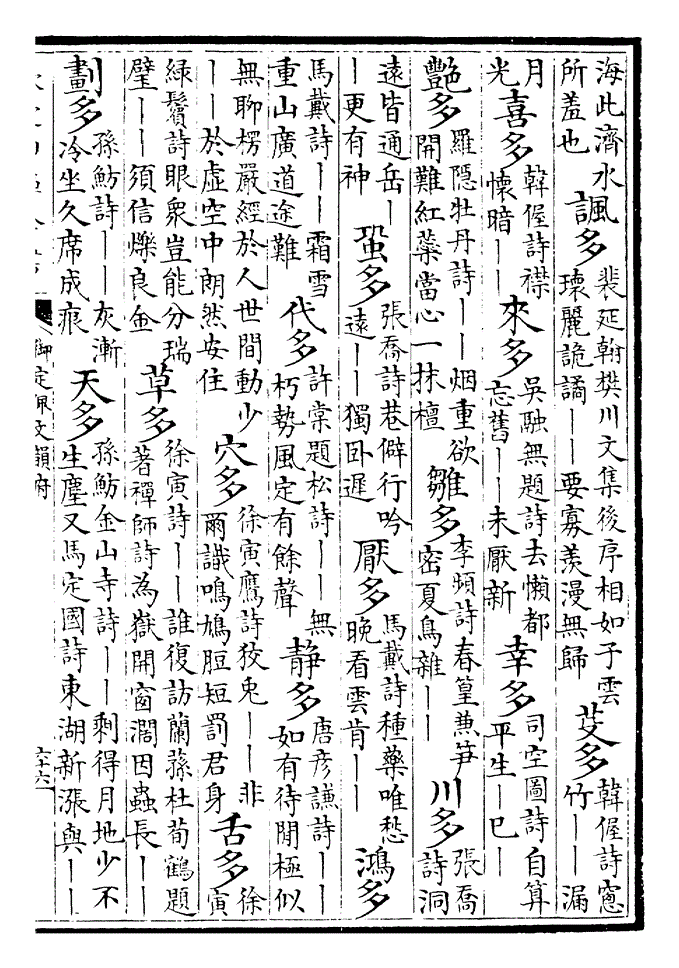 海此濟水所羞也 諷多 裴延翰樊川文集後序相如子雲瓌麗詭譎——要寡羨漫無歸 芟多 韓偓詩窻竹——漏
月光 喜多 韓偓詩襟懷暗—— 來多 吳融無題詩去懶都忘舊——未厭新 幸多 司空圖詩自算平生—已—
艷多 羅隱牡丹詩——烟重欲開難紅蘂當心一抹檀 雛多 李頻詩春篁兼笋密夏鳥雜—— 川多 張喬詩洞
遠皆通岳——更有神 蛩多 張喬詩巷僻行吟遠——獨卧遲 厭多 馬戴詩種藥唯愁晚看雲肯—— 鴻多
馬戴詩——霜雪重山廣道途難 代多 許棠題松詩——無朽勢風定有餘聲 靜多 唐彥謙詩——如有待閒極似—
無聊楞嚴經於人世間動少——於虛空中朗然安住 穴多 徐寅鷹詩狡兎——非爾識鳴鳩脰短罰君身 舌多 徐寅
綠鬢詩眼衆豈能分瑞璧——須信爍良金 草多 徐寅詩——誰復訪蘭蓀杜荀鶴題著禪師詩為嶽開窗濶因蟲長——
劃多 孫魴詩——灰漸冷坐久席成痕 天多 孫魴金山寺詩——剩得月地少不生塵又馬定國詩東湖新漲與——
御定佩文韻府